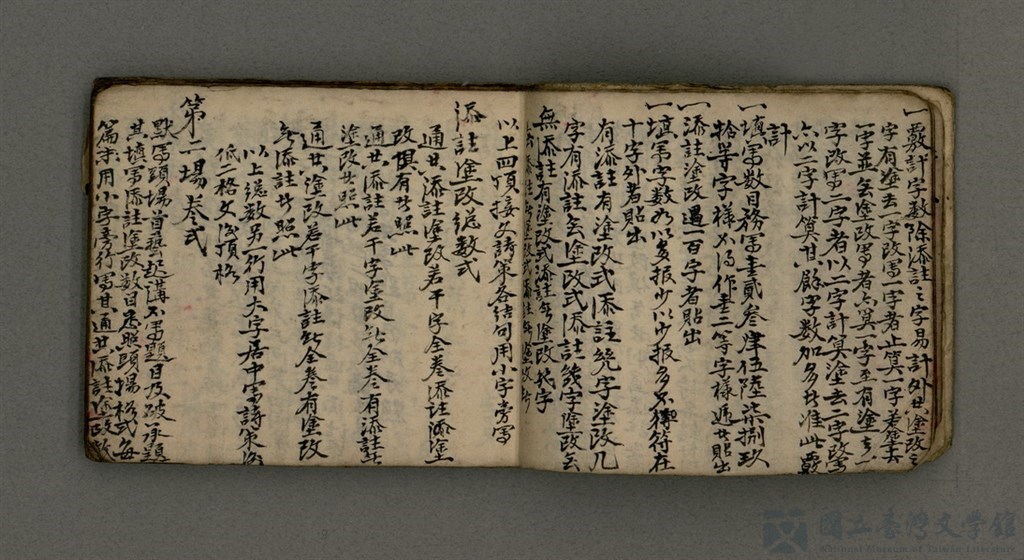 一覈計字數除添註之字易計外其塗改之
字有塗去一字改寫一字者止算一字若塗去
一字並無塗改寫者亦算一字至有塗去一
字改寫二字者以二字計算塗去二字改寫
亦以二字計算其餘字數加多者准此覈
計
一填寫數目務寫壹貳叁肆伍陸柒捌玖
拾等字樣如有作壹二等字樣過者貼出
一添註塗改過一百字者貼出
一填寫字數如以多報少以少報多不符在
十字外者貼出
有添註有塗改式添註幾字塗改几
字有添註無塗改式添註幾字塗改無
無添註有塗改式添註無塗改幾字
以上四項接文詩策各結句用小字旁寫
添註塗改總數式
通共添註塗改若干字全卷添註塗
改俱有者照此
通共添註若干字塗改無全卷有添註無
塗改者照此
通共塗改若干字添註無全卷有塗改
無添註者照此
以上總數另行用大字居中寫詩策後
低二格文後頂格
第二場卷式
默寫頭場首藝起講不寫題目及破承題
其填寫添註塗改數目悉照頭場格式每
篇末用小字旁行寫其通共添註塗改數
國立臺灣文學館
National Museum of Taiwan Literature